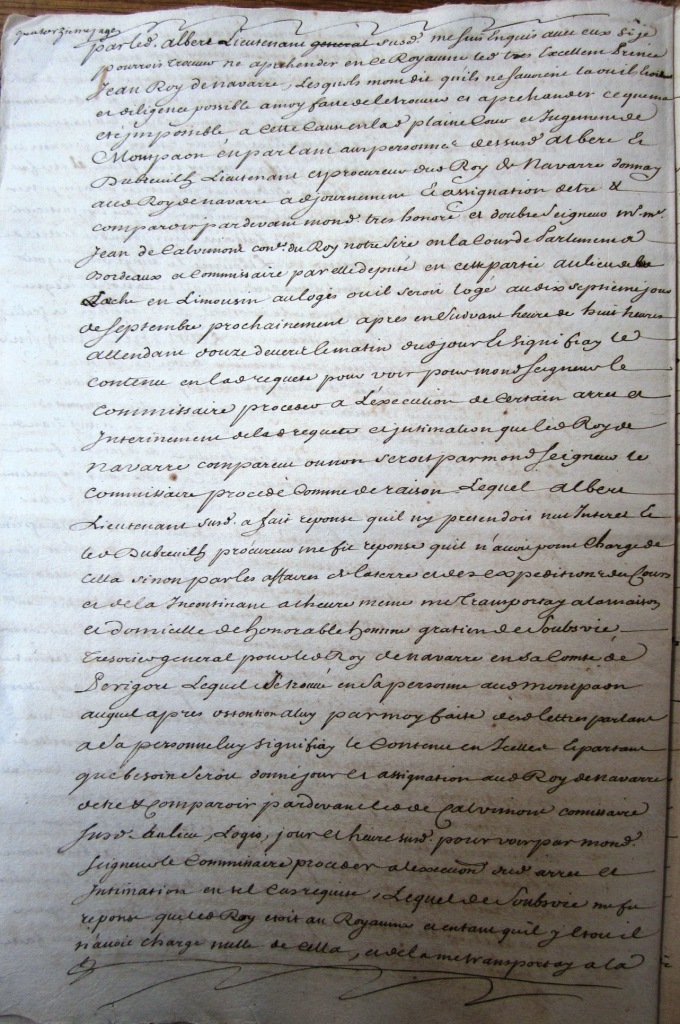 quatorzieme page
par led. albert Lieutenant general susd. me suis enquis avec eux si je
pourrois trouver ne aprehender en ce Royaume led tres Excellent Prince
Jean Roy de navarre, Lesquels mont dit quils ne sauroient la ou il estoit
et diligence possible a moy faite de le trouver et aprehander ce que ma
eté impossible a cette cause en lad plaine Cour et Jugement de
Montpaon en parlant aux personnes desusd. Albert Et
Dubreuilh Lieutenant et procureur dud Roy de Navarre donnay
aud Roy de navarre adjournement et assignation detre &
comparoir pardevant mond. tres honoré et doubté Seigneur mr. mr.
Jean de Calvimont conr. du Roy notre sire en la Cour de Parlement de
Bordeaux & Commissaire par elle deputé en cette partie au lieu de
Lache en Limousin au logis ou il seroit logé au dix septieme jour
de Septembre prochainement apres ensuivant heure de huit heures
attendant douze devers le matin dud jour le signifiay le
contenu en lad requete pour voir pour mond Seigneur le
Commissaire proceder a L'execution de certain arret et
Interinement de lad requete et intimation que led Roy de
navarre comparent ou non seroit par mond Seigneur le
Commissaire procedé comme de raison Lequel Albert
Lieutenant susd. a fait reponse quil ny pretendois nul Interet Et
led Dubreuilh procureur me fit reponse quil n'avoit point Charge de
cella sinon par les affaires de la terre et des expeditions du Cours
et de la Incontinant a lheure meme me Transportay a la maison
et domicille de honorable homme gratien de Soubsvie
Tresorier general pour led Roy de navarre en sa Comté de
Perigort Lequel Je trouvé en sa personne aud montpaon
auquel apres ostention a luy par moy faite desd lettres parlant
a sa personne luy signifiay le Contenu en Icelles Et partant
que besoin seroit donné jour et assignation aud Roy de navarre
detre & Comparoir pardevant led de Calvimont comissaire
susd. au lieu, Logis, jour et heure susd. pour voir par mond.
Seigneur le Commissaire proceder a lexecution dud arret et
Intimation en tel cas requise, Lequel de Soubsvie me fit
reponse que led Roy etoit au Royaume et entant quil y etoit il
n'avoit charge nulle de cella, et de la me transportay a la